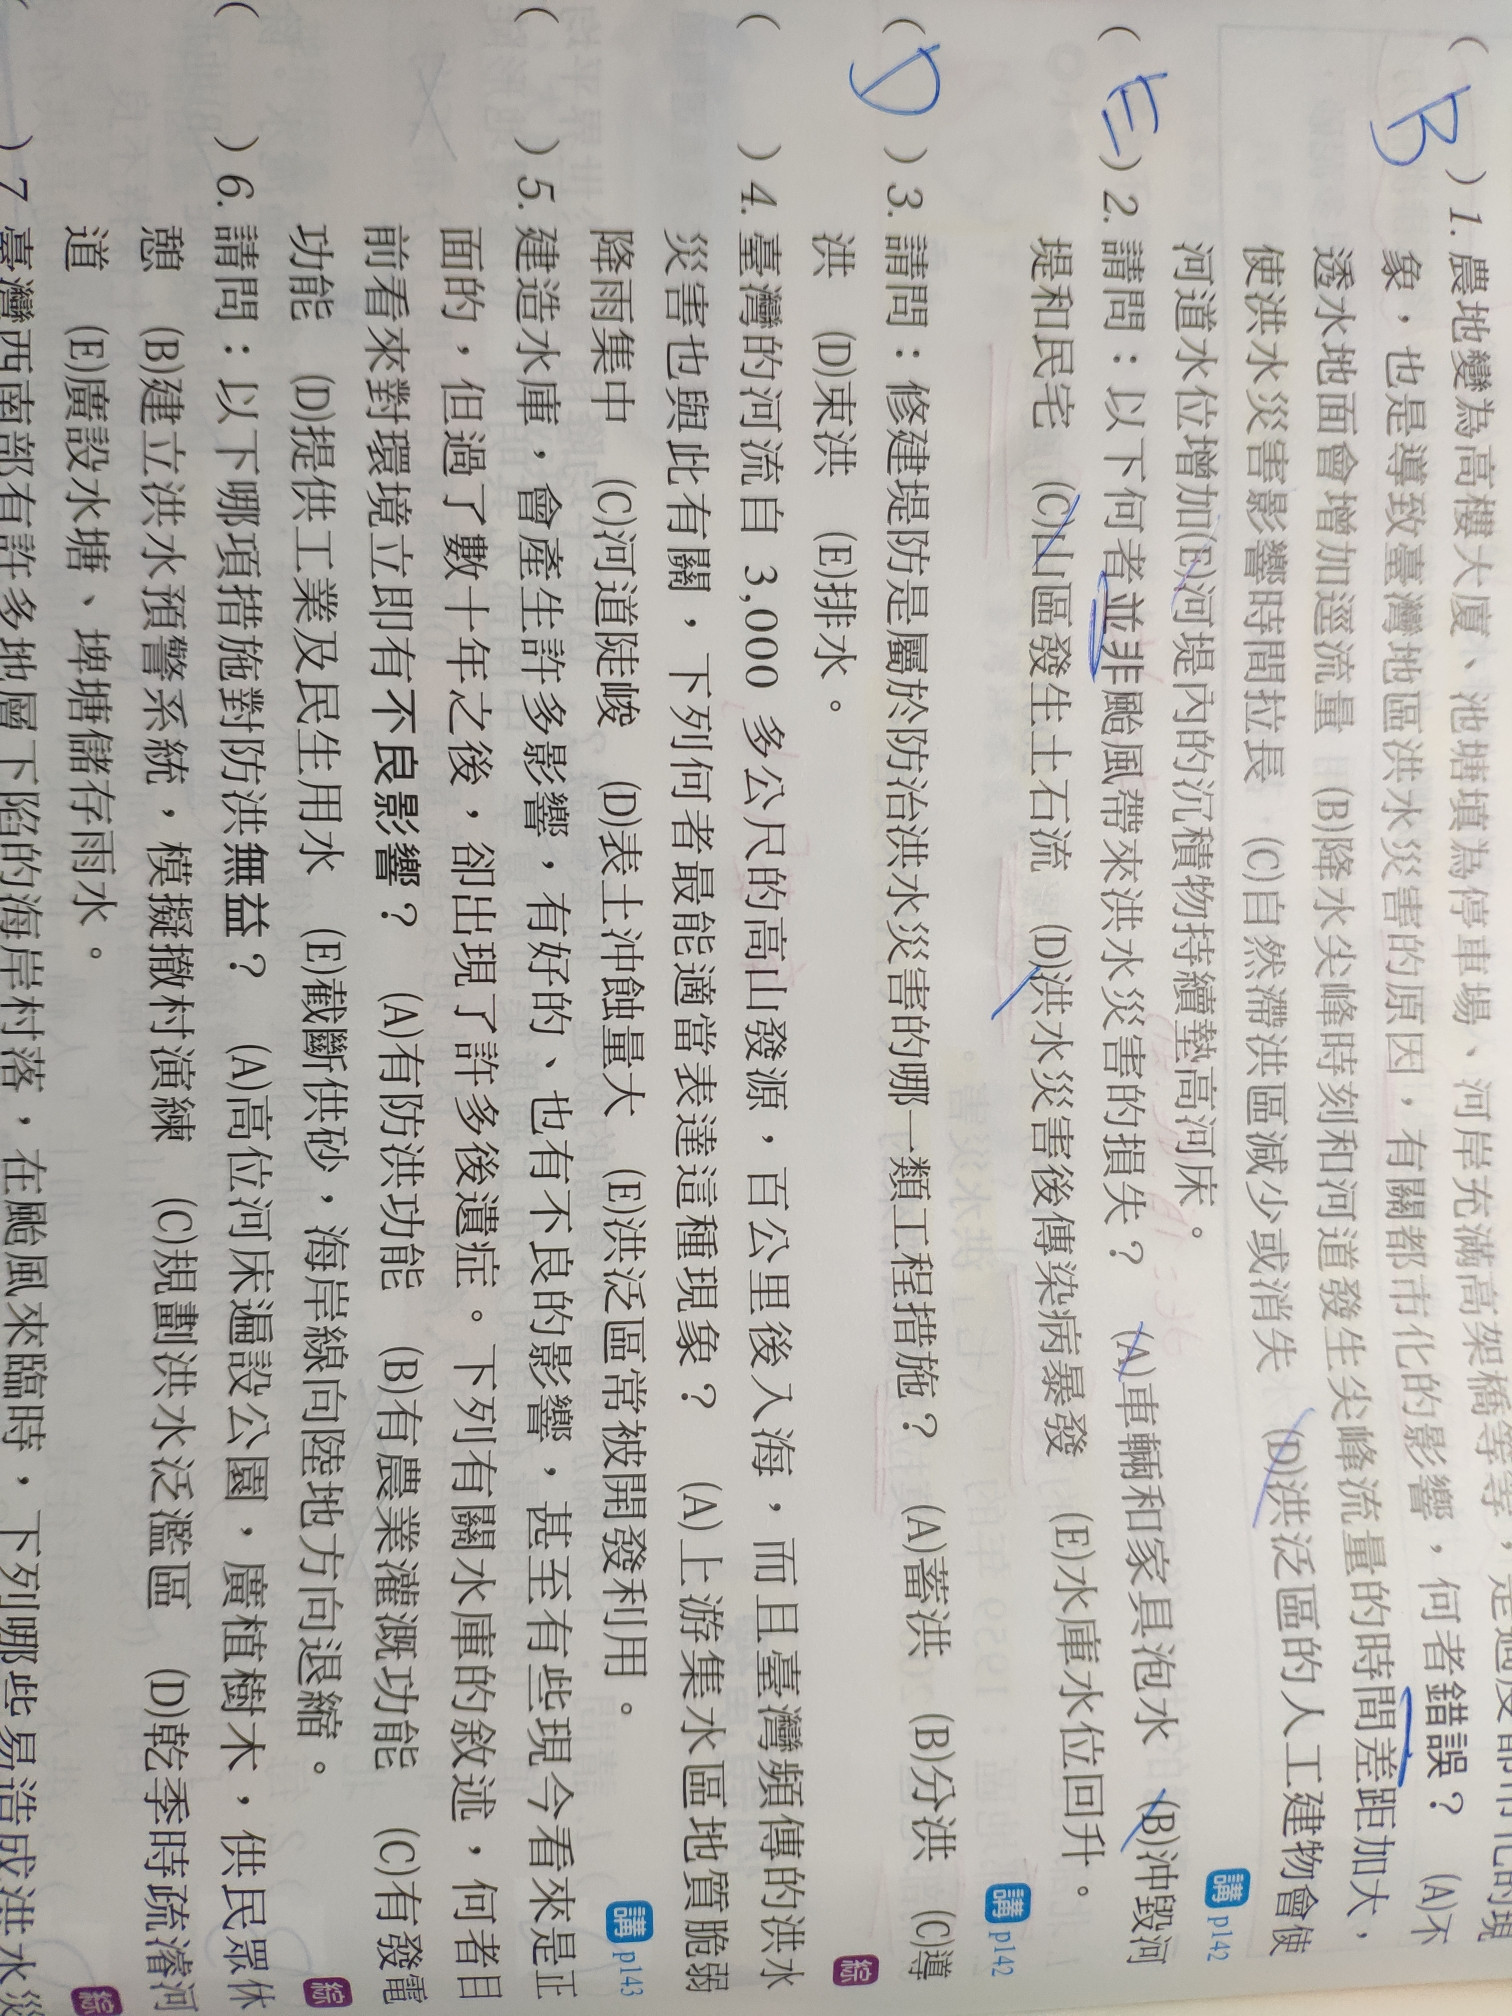 (B)1. 農地變為高樓大廈、池塘填為停車場、河岸充滿高架橋等等，是過度都市化的現
象，也是導致臺灣地區洪水災害的原因，有關都市化的影響，何者錯誤？ (A)不
透水地面會增加逕流量 (B)降水尖峰時刻和河道發生尖峰流量的時間差距加大，
使洪水災害影響時間拉長 (C)自然滯洪區減少或消失 (D)洪泛區的人工建物會使
河道水位增加(E)河堤內的沉積物持續墊高河床。 講 p142
(E)2. 請問：以下何者並非颱風帶來洪水災害的損失？ (A)車輛和家具泡水 (B)沖毀河
堤和民宅 (C)山區發生土石流 (D)洪水災害後傳染病暴發 (E)水庫水位回升。
講 p142
(D)3. 請問：修建堤防是屬於防治洪水災害的哪一類工程措施？ (A)蓄洪 (B)分洪 (C)導
洪 (D)束洪 (E)排水。 綜
( )4. 臺灣的河流自 3,000 多公尺的高山發源，百公里後入海，而且臺灣頻傳的洪水
災害也與此有關，下列何者最能適當表達這種現象？ (A)上游集水區地質脆弱
降雨集中 (C)河道陡峻 (D)表土沖蝕量大 (E)洪泛區常被開發利用。 講 p143
( )5. 建造水庫，會產生許多影響，有好的、也有不良的影響，甚至有些現今看來是正
面的，但過了數十年之後，卻出現了許多後遺症。下列有關水庫的敘述，何者目
前看來對環境立即有不良影響？ (A)有防洪功能 (B)有農業灌溉功能 (C)有發電
功能 (D)提供工業及民生用水 (E)截斷供砂，海岸線向陸地方向退縮。 綜
( )6. 請問：以下哪項措施對防洪無益？ (A)高位河床遍設公園，廣植樹木，供民眾休
憩 (B)建立洪水預警系統，模擬撤村演練 (C)規劃洪水泛濫區 (D)乾季時疏濬河
道 (E)廣設水塘、埤塘儲存雨水。 綜
( )7. 臺灣西南部有許多地層下陷的海岸村落，在颱風來臨時，下列哪些易造成洪水災